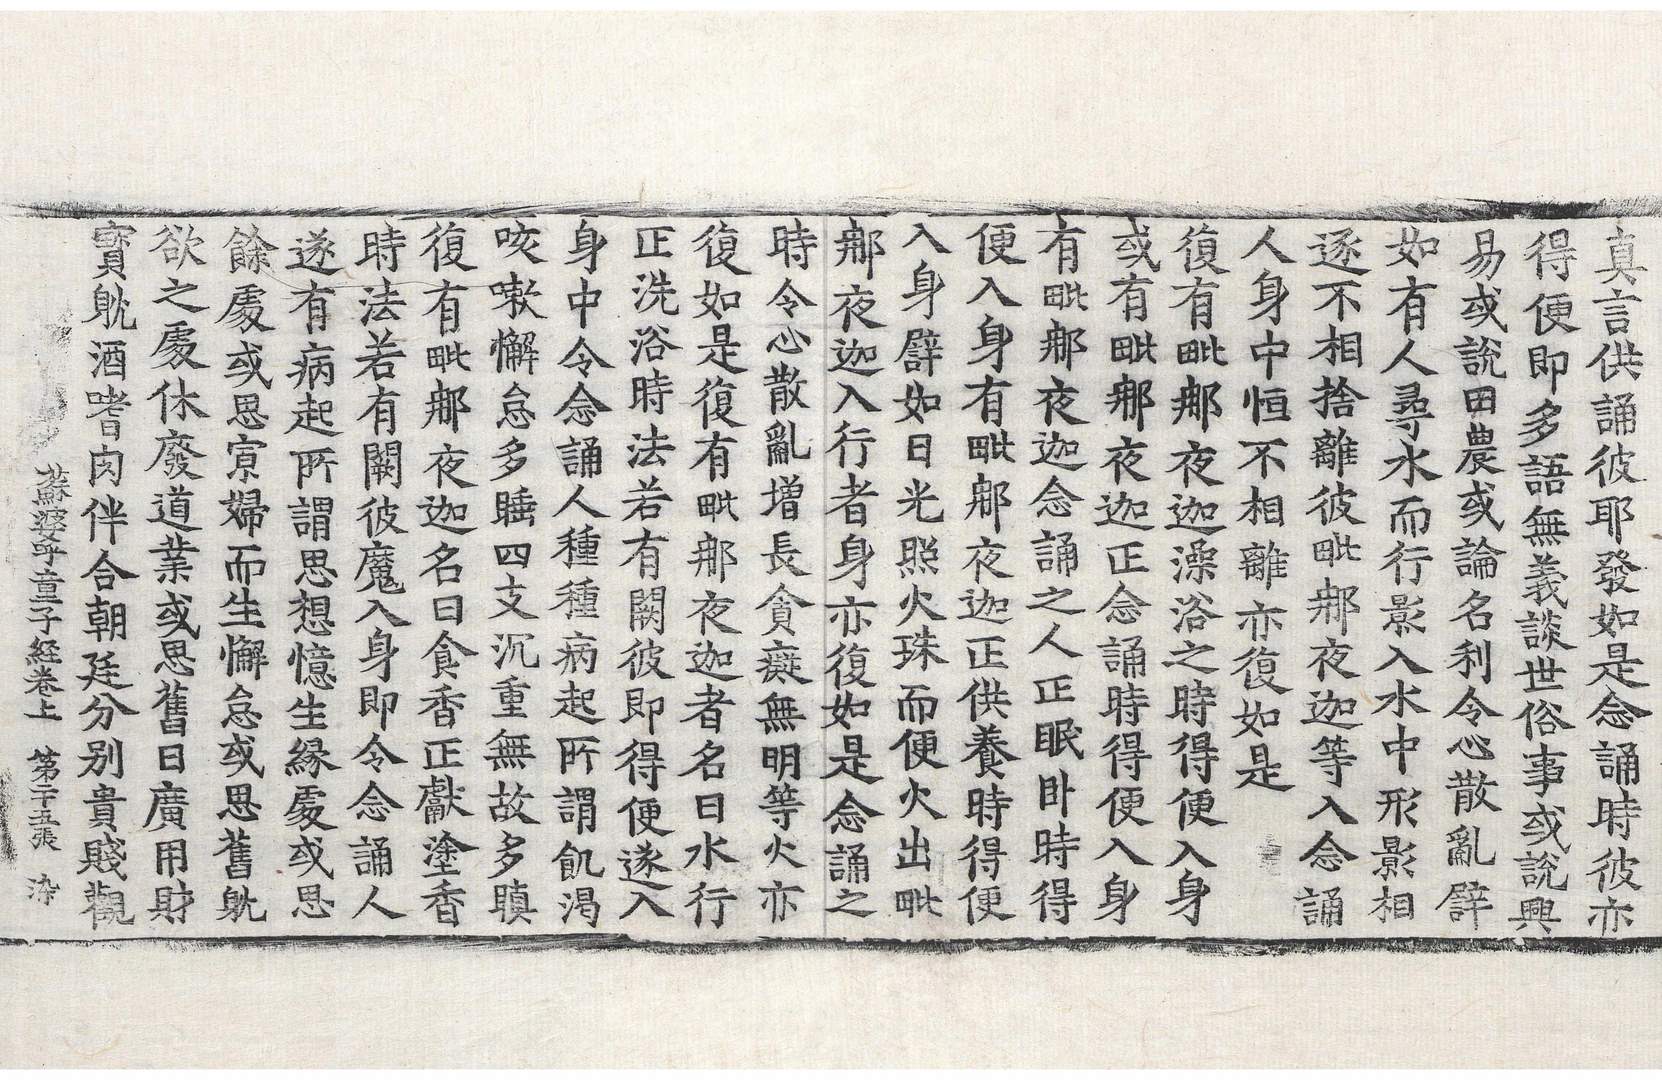 真言供誦彼耶發如是念誦時彼亦
得便即多語無義談世俗事或說興
易或說田農或論名利令心散亂譬
如有人尋水而行影入水中形影相
逐不相捨離彼毗那夜迦等入念誦
人身中恒不相離亦復如是
復有毗那夜迦澡浴之時得便入身
或有毗那夜迦正念誦時得便入身
有毗那夜迦念誦之人正眠卧時得
便入身有毗那夜迦正供養時得便
入身譬如日光照火珠而便火出毗
那夜迦入行者身亦復如是念誦之
時令心散亂增長貪癡無明等火亦
復如是復有毗那夜迦者名曰水行
正洗浴時法若有闕彼即得便遂入
身中令念誦人種種病起所謂飢渴
咳嗽懈怠多睡四支沉重無故多瞋
復有毗那夜迦名曰貪香正獻塗香
時法若有闕彼魔入身即令念誦人
遂有病起所謂思想憶生緣處或思
餘處或思寡婦而生懈怠或思舊躭
欲之處休廢道業或思舊日廣用財
寶躭酒嗜肉伴合朝廷分別貴賤觀
蘇婆乎童子經卷上 第十五張 染